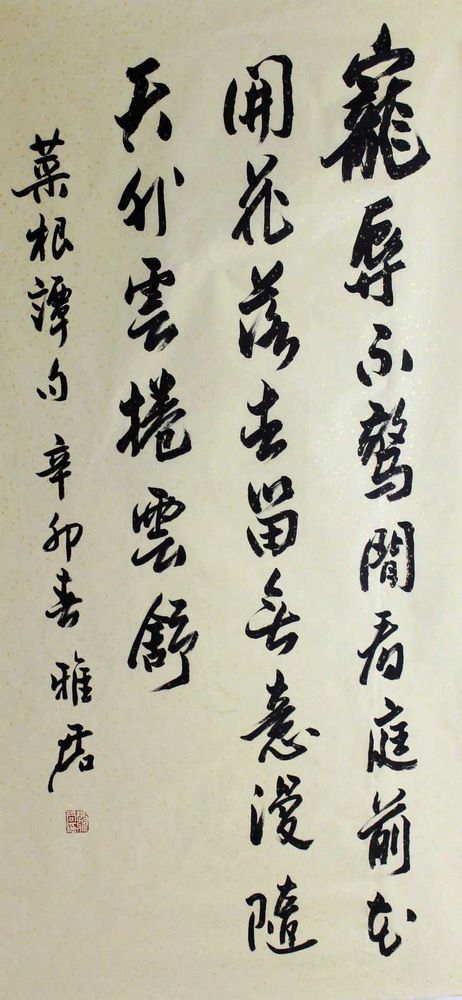 寵辱不驚閒看庭前花
開花落去留無意漫隨
天外雲捲雲舒
菜根譚句 辛卯春 雅居